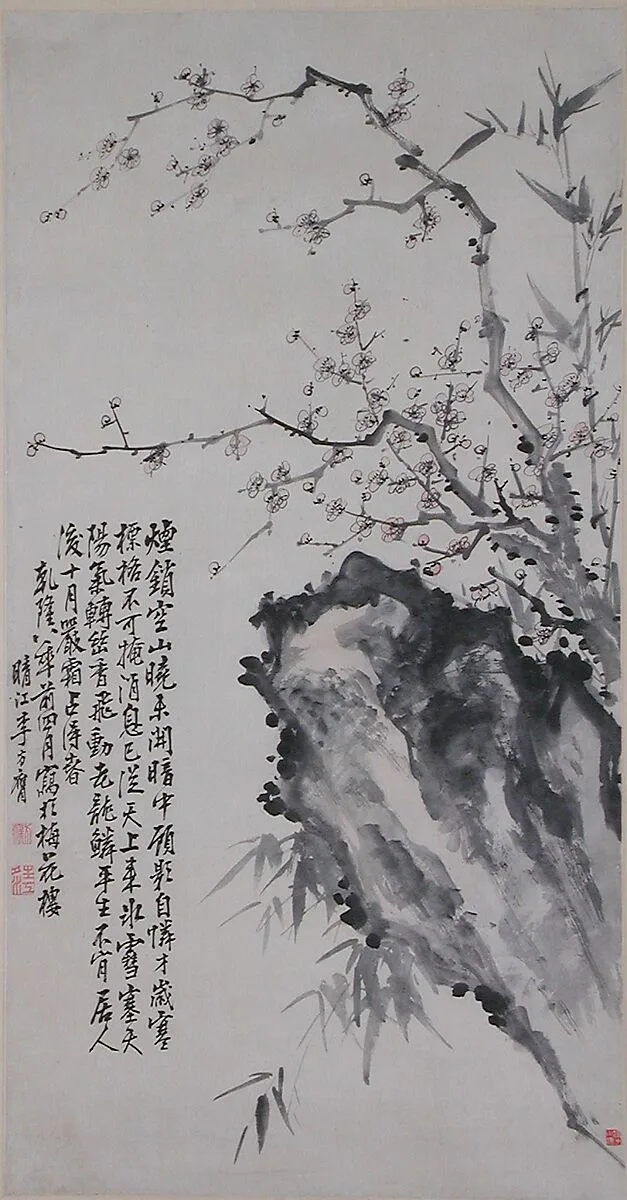 煙鎖空山曉未開暗中顧影自憐才歲寒
標格不可掩消息已從天上來氷雪塞天
陽氣轉幽香飛動老龍鱗平生不肯居人
後十月嚴霜占得春
乾隆八年前四月寫於梅花樓
晴江李方膺